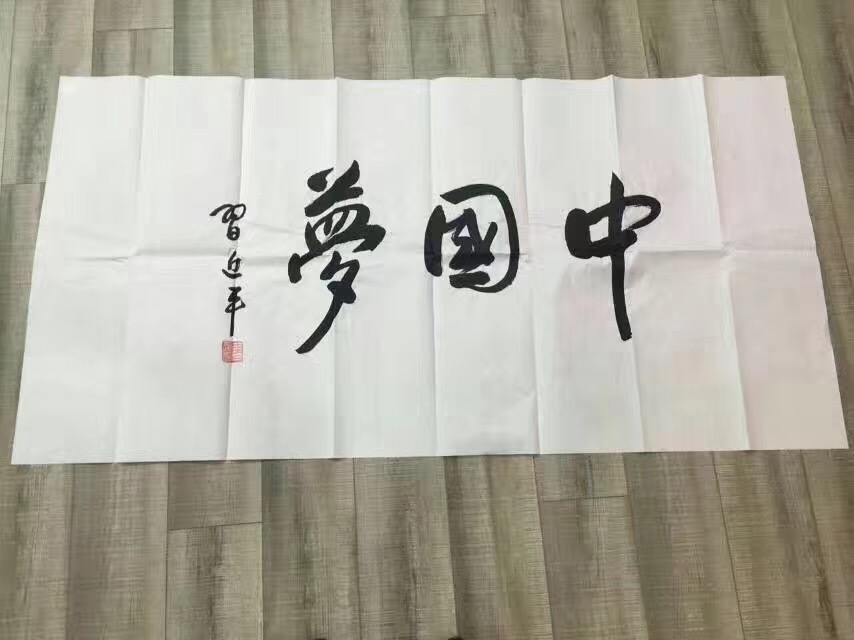 中國夢
習近平